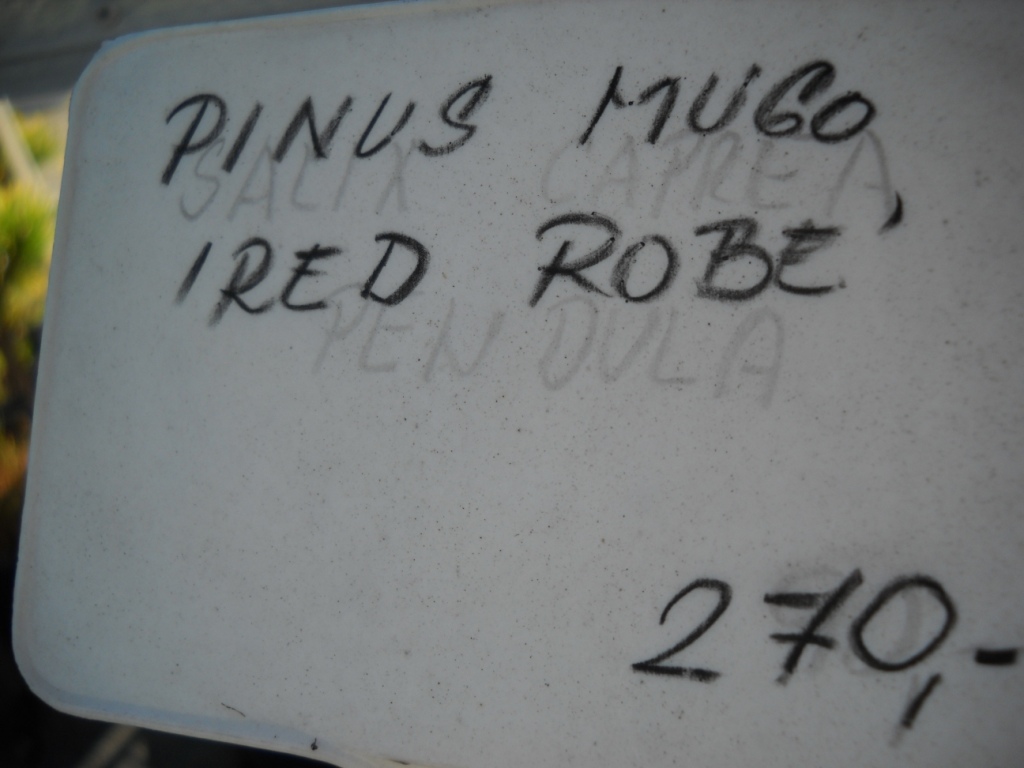 PINUS MUGO
SALIX CAPREA
'RED ROBE'
PENDULA
270,-